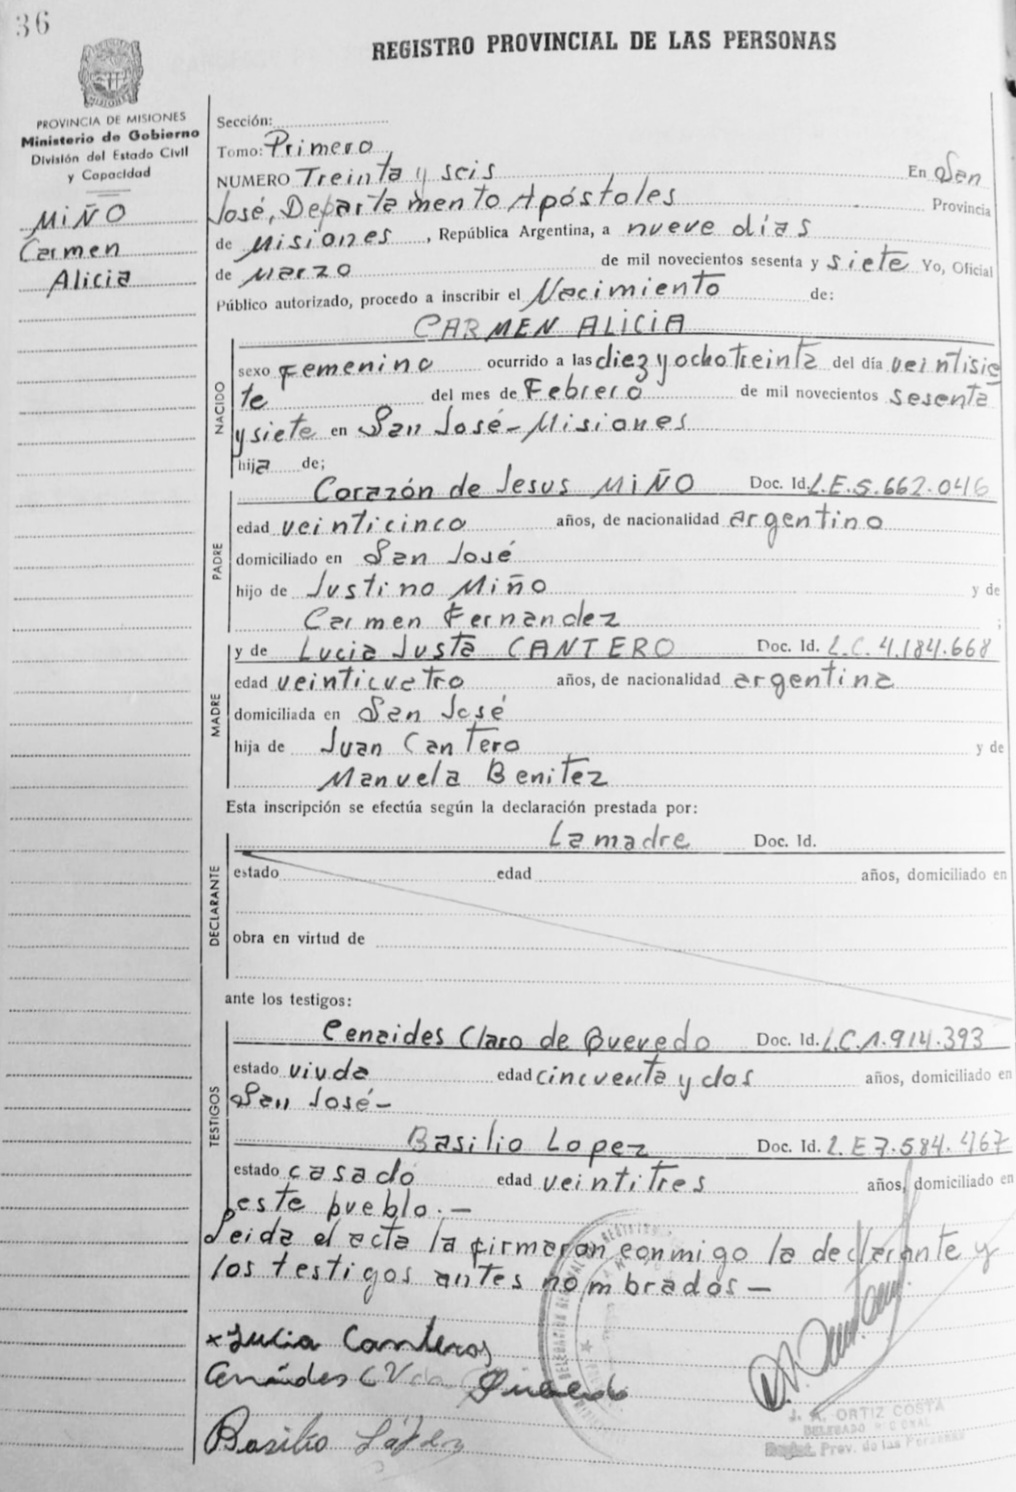 36
REGISTRO PROVINCIAL DE LAS PERSONAS
MISIONES
PROVINCIA DE MISIONES
Ministerio de Gobierno
División del Estado Civil
y Capacidad
MIÑO
Carmen
Alicia
Sección:
Tomo: Primero
NUMERO Treinta y seis En San
José, Departamento Apóstoles Provincia
de Misiones, República Argentina, a nueve días
de Marzo de mil novecientos sesenta y siete Yo, Oficial
Público autorizado, procedo a inscribir el Nacimiento de:
CARMEN ALICIA
NACIDO
sexo Femenino ocurrido a las diez y ocho treinta del día veintisie
te del mes de Febrero de mil novecientos sesenta
y siete en San José - Misiones
hija de;
PADRE
Corazón de Jesus MIÑO Doc. Id. L.E.5.662.046
edad veinticinco años, de nacionalidad argentino
domiciliado en San José
hijo de Justino Miño y de
Carmen Fernandez ;
MADRE
y de Lucia Justa CANTERO Doc. Id. L.C. 4.184.668
edad veinticuatro años, de nacionalidad argentina
domiciliada en San José
hija de Juan Cantero y de
Manuela Benitez
Esta inscripción se efectúa según la declaración prestada por:
DECLARANTE
La madre Doc. Id.
estado edad años, domiciliado en
obra en virtud de
ante los testigos:
TESTIGOS
Cenaides Claro de Quevedo Doc. Id. L.C.1.914.393
estado viuda edad cincuenta y dos años, domiciliado en
San José -
Basilio Lopez Doc. Id. L.E 7.584.467
estado casado edad veintitres años, domiciliado en
este pueblo. -
Leida el acta la firmaron conmigo la declarante y
los testigos antes nombrados -
x Lucia Canteros
Cenáides C V da Quevedo
Basilio López
J. A. ORTIZ COSTA
DELEGADO
Regist. Prov. de las Personas